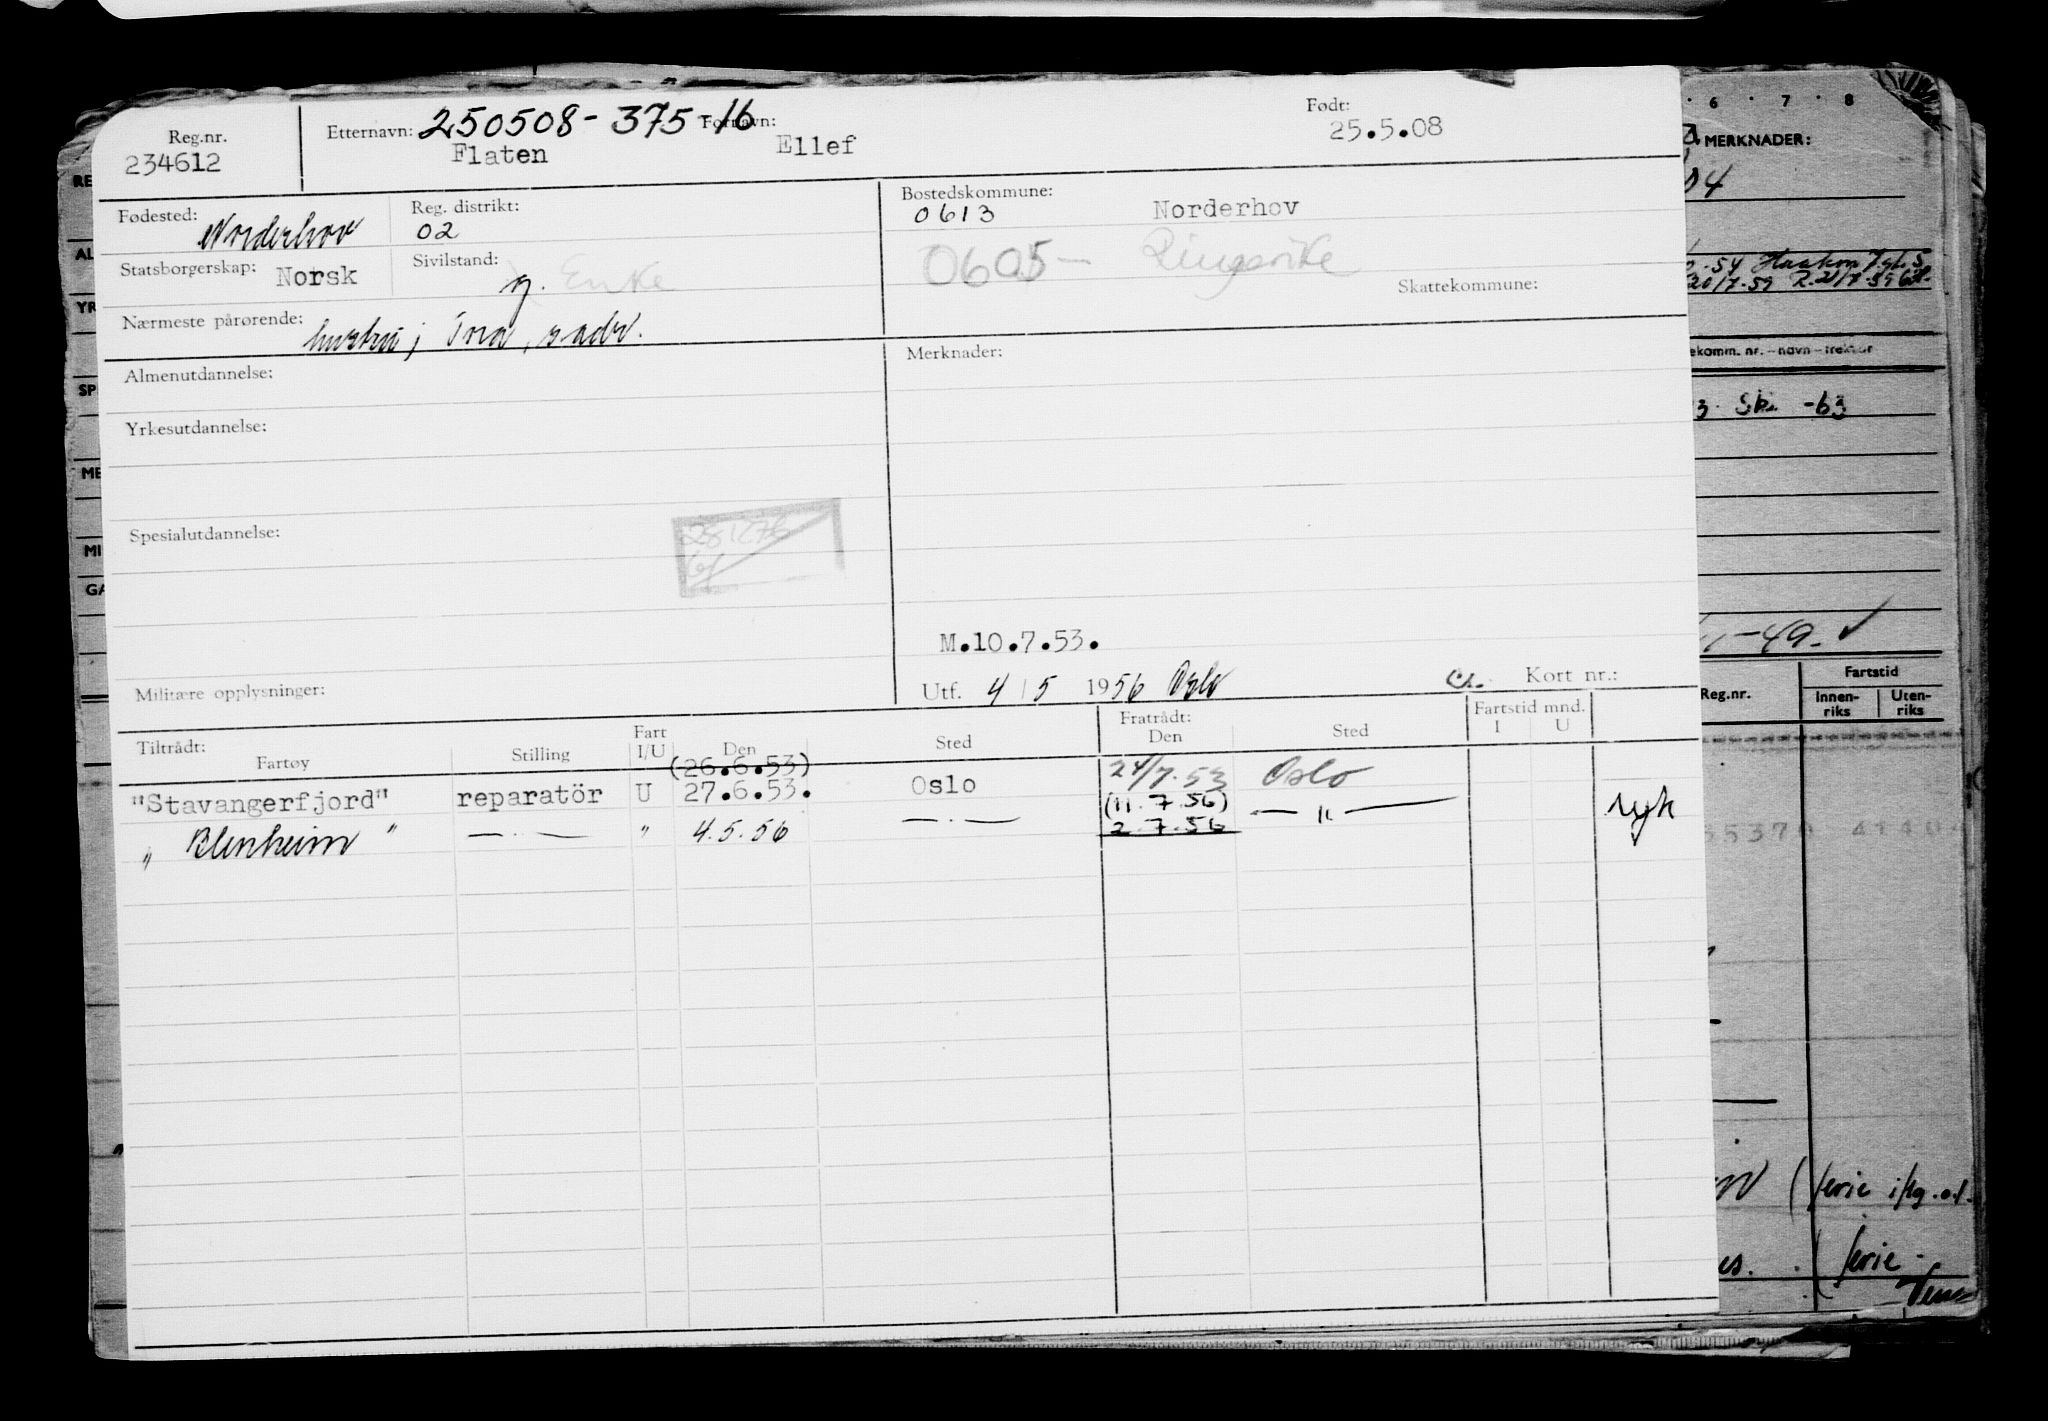 Reg.nr. Etternavn: 250508-375-16 Fornavn: Født:
234612 Flaten Ellef 25.5.08
Fødested: Norderhov Reg. distrikt: 02 Bostedskommune: 0613 Norderhov
Statsborgerskap: Norsk Sivilstand: g. Enke 0605- Ringerike
Skattekommune:
Nærmeste pårørende: hustru; sadr.
Almenutdannelse: Merknader:
Yrkesutdannelse:
Spesialutdannelse:
281276
M.10.7.53.
Militære opplysninger: Utf. 4/5 1956 Oslo Kort nr.:
Tiltrådt: Fratrådt: Fartstid mnd.
Fartøy Stilling Fart I/U Den Sted Den Sted I U
(26.6.53)
"Stavangerfjord" reparatör U 27.6.53. Oslo 24/7.53 Oslo
(11.7.56) — " —
" Blenheim " — . — " 4.5.56 — . — 2.7.56
6 . 7 . 8
MERKNADER:
04
54 Haakon
20/7.59
ekomm. nr. – navn – trekkår
3. Ski -63
-49. ✓
Reg.nr. Fartstid
Innen-riks Uten-riks
(serie
es. (serie
RE
AL
YR
SP
ME
MI
GA